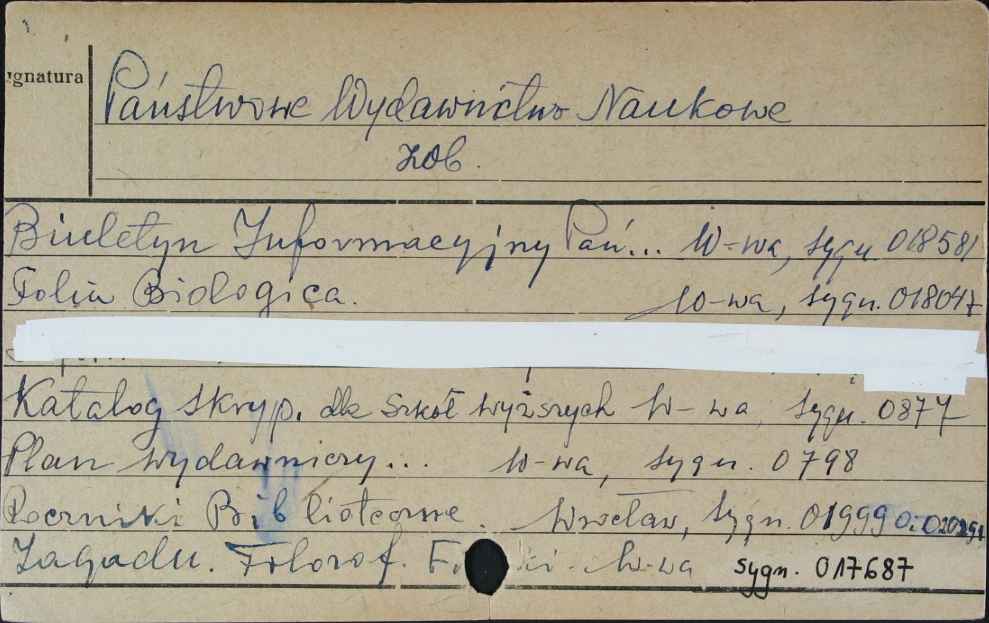 ignatura
Państwowe Wydawnictwo Naukowe
zob.
Biuletyn Informacyjny Pań... W-wa, sygn. 018581
Folia Biologica. W-wa, sygn. 018047
Katalog skryp. dla szkół wyższych W-wa, sygn. 0877
Plan wydawniczy... W-wa, sygn. 0798
Roczniki Biblioteczne. Wrocław, sygn. 01999
Zagadn. Filozof. W-wa sygn. 017687